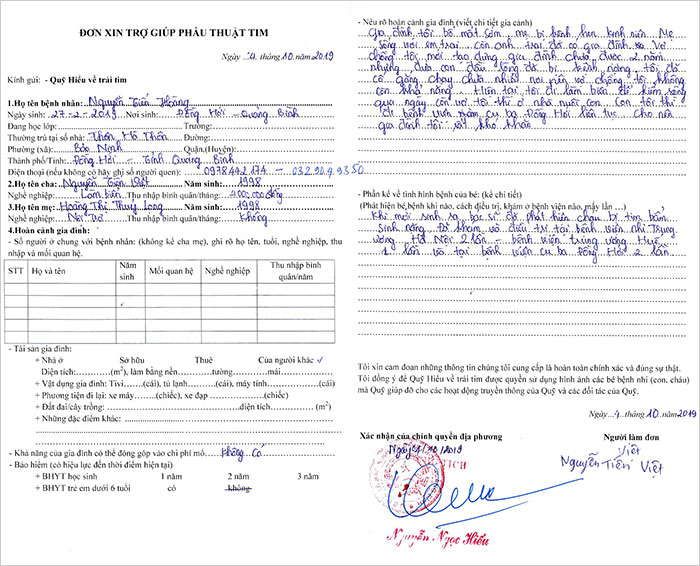 ĐƠN XIN TRỢ GIÚP PHẪU THUẬT TIM
Ngày 4. tháng 10. năm 2019
Kính gửi: - Quỹ Hiểu về trái tim
1.Họ tên bệnh nhân: Nguyễn Tuấn Hoàng
Ngày sinh: 27-2-2019 Nơi sinh: Đồng Hới - Quảng Bình
Đang học lớp: Trường:
Thường trú tại số nhà: Thôn Hà Thôn Đường:
Phường (xã): Bảo Ninh Quận,(Huyện):
Thành phố/Tỉnh: Đồng Hới - Tỉnh Quảng Bình
Điện thoại (nếu không có hãy ghi số người quen): 0978442174 -
2.Họ tên cha: Nguyễn Tiến Việt Năm sinh: 1998
Nghề nghiệp: Làm biển Thu nhập bình quân/tháng: 4.000.000 đồng
3.Họ tên mẹ: Hoàng Thị Thuỳ Long Năm sinh: 1998
Nghề nghiệp: Nội Trợ Thu nhập bình quân/tháng: Không
4.Hoàn cảnh gia đình:
- Số người ở chung với bệnh nhân: (không kể cha mẹ), ghi rõ họ tên, tuổi, nghề nghiệp, thu
nhập và mối quan hệ.
STT Họ và tên Năm sinh Mối quan hệ Nghề nghiệp Thu nhập bình quân/năm
- Tài sản gia đình:
+ Nhà ở Sở hữu Thuê Của người khác ✓
Diện tích:(m2), làm bằng nền tường mái
+ Vật dụng gia đình: Tivi (cái), tủ lạnh (cái), máy tính (cái)
+ Phương tiện đi lại: xe máy (chiếc), xe đạp (chiếc)
+ Đất đai/cây trồng: diện tích (m2)
+ Những đặc điểm khác:
- Khả năng của gia đình có thể đóng góp vào chi phí mổ Không có
- Bảo hiểm (có hiệu lực đến thời điểm hiện tại)
+ BHYT học sinh 1 năm 2 năm 3 năm
+ BHYT trẻ em dưới 6 tuổi có không
- Nêu rõ hoàn cảnh gia đình (viết chi tiết gia cảnh)
Gia đình tôi bố mất sớm mẹ bị bệnh Mẹ
sống với em trai còn anh trai đã có gia đình Vợ
chồng tôi mới tạo dựng gia đình chưa được 2 năm
nhưng đứa con đầu lòng đã bị bệnh nặng tôi đã
cố gắng chạy chữa nhiều nơi nên vợ chồng tôi không
còn khả năng Hiện tại tôi đi làm biển để kiếm sống
qua ngày còn vợ tôi thì ở nhà nuôi con Con tôi thì
bệnh viện cu ba Đồng Hới liên tục Cho nên
gia đình tôi rất khó khăn
- Phần kể về tình hình bệnh của bé: (kể chi tiết)
(Phát hiện bé bệnh khi nào, cách điều trị, khám ở bệnh viện nào, mấy lần …)
Khi mới sinh ra bác sĩ đã phát hiện cháu bị tim bẩm
sinh nặng khám và điều trị tại bệnh viện nhi Trung
ương Hà Nội 2 lần - bệnh viện trung ương Huế
1 lần và tại bệnh viện cu ba Đồng Hới 2 lần
Tôi xin cam đoan những thông tin chúng tôi cung cấp là hoàn toàn chính xác và đúng sự thật.
Tôi đồng ý để Quỹ Hiểu về trái tim được quyền sử dụng hình ảnh các bé bệnh nhi (con, cháu)
mà Quỹ giúp đỡ cho các hoạt động truyền thông của Quỹ và các đối tác của Quỹ.
Ngày 4 tháng 10 năm 2019
Xác nhận của chính quyền địa phương Người làm đơn
Việt
Nguyễn Tiến Việt
Nguyễn Ngọc Hiếu